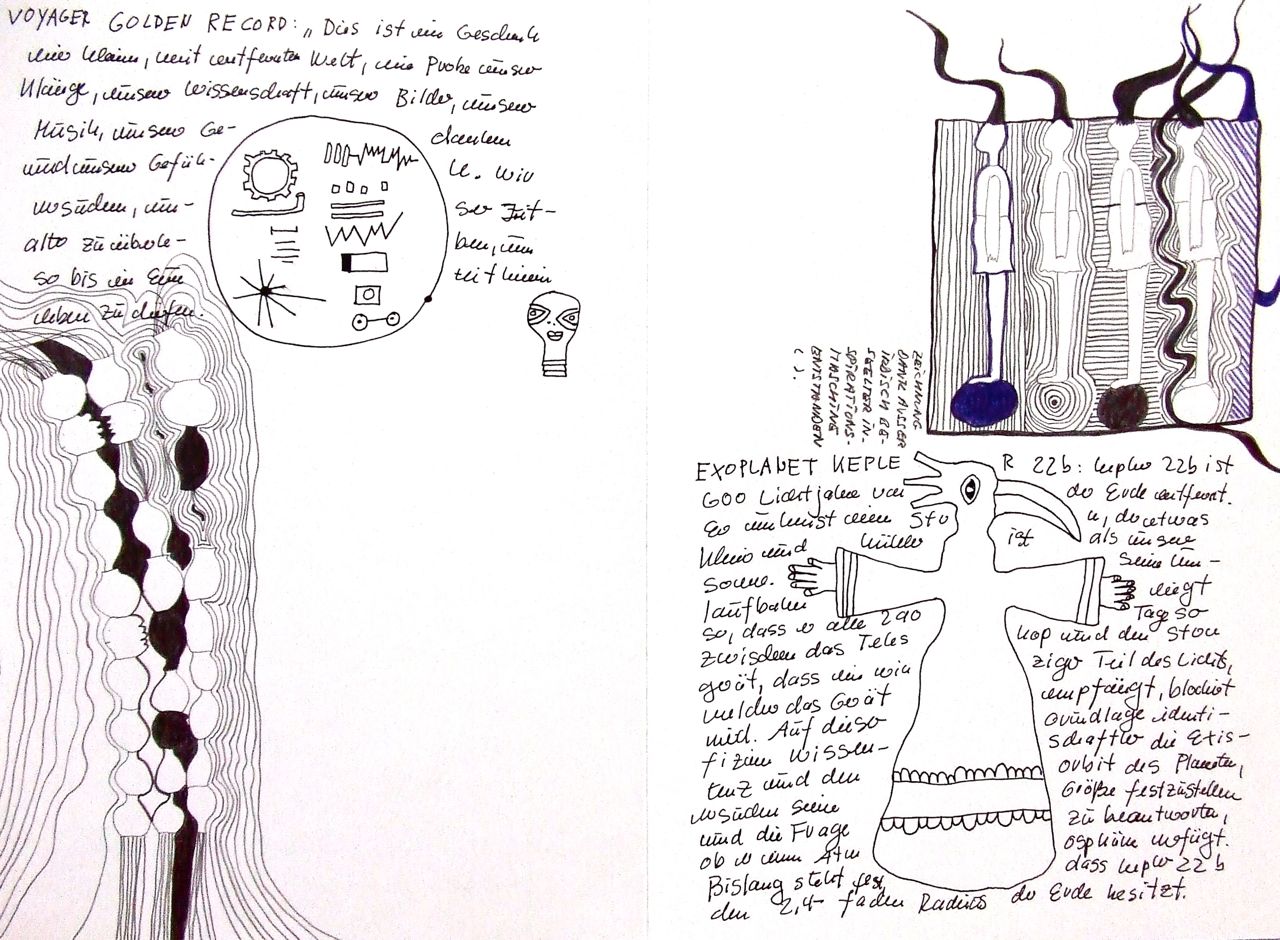 VOYAGER GOLDEN RECORD: „Dies ist ein Geschenk
einer kleinen, weit entfernten Welt, eine Probe unserer
Klänge, unserer Wissenschaft, unserer Bilder, unserer
Musik, unserer Ge- danken
und unserer Gefüh- le. Wir
versuchen, un- ser Zeit-
alter zu überle- ben, um
so bis in Eure Zeit hinein
leben zu dürfen.
ZEICHNUNG
DANK AUSSER
IRDISCH BE-
SEELTER IN-
SPIRATIONS-
MASCHINE
ENTSTANDEN
( ).
EXOPLANET KEPLE R 22b: Kepler 22b ist
600 Lichtjahre von der Erde entfernt.
Er umkreist einen Ster n, der etwas
kleiner und kühler ist als unsere
Sonne. Seine Um-
laufbahn liegt
so, dass er alle 290 Tage so
zwischen das Teles kop und den Stern
gerät, dass ein win ziger Teil des Lichts,
welches das Gerät empfängt, blockiert
wird. Auf dieser Grundlage identi-
fizieren Wissen- schaftler die Exis-
tenz und den Orbit des Planeten,
versuchen seine Größe festzustellen
und die Frage zu beantworten,
ob er eine Atm osphäre verfügt.
Bislang steht fest, dass Kepler 22 b
den 2,4-fachen Radius der Erde besitzt.